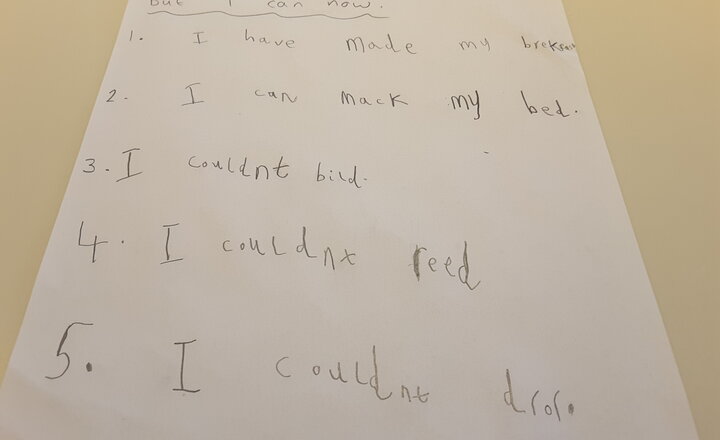 but I can now.
1. I have made my brekfast
2. I can mack my bed.
3. I couldnt bild.
4. I couldnt reed
5. I couldnt dror.